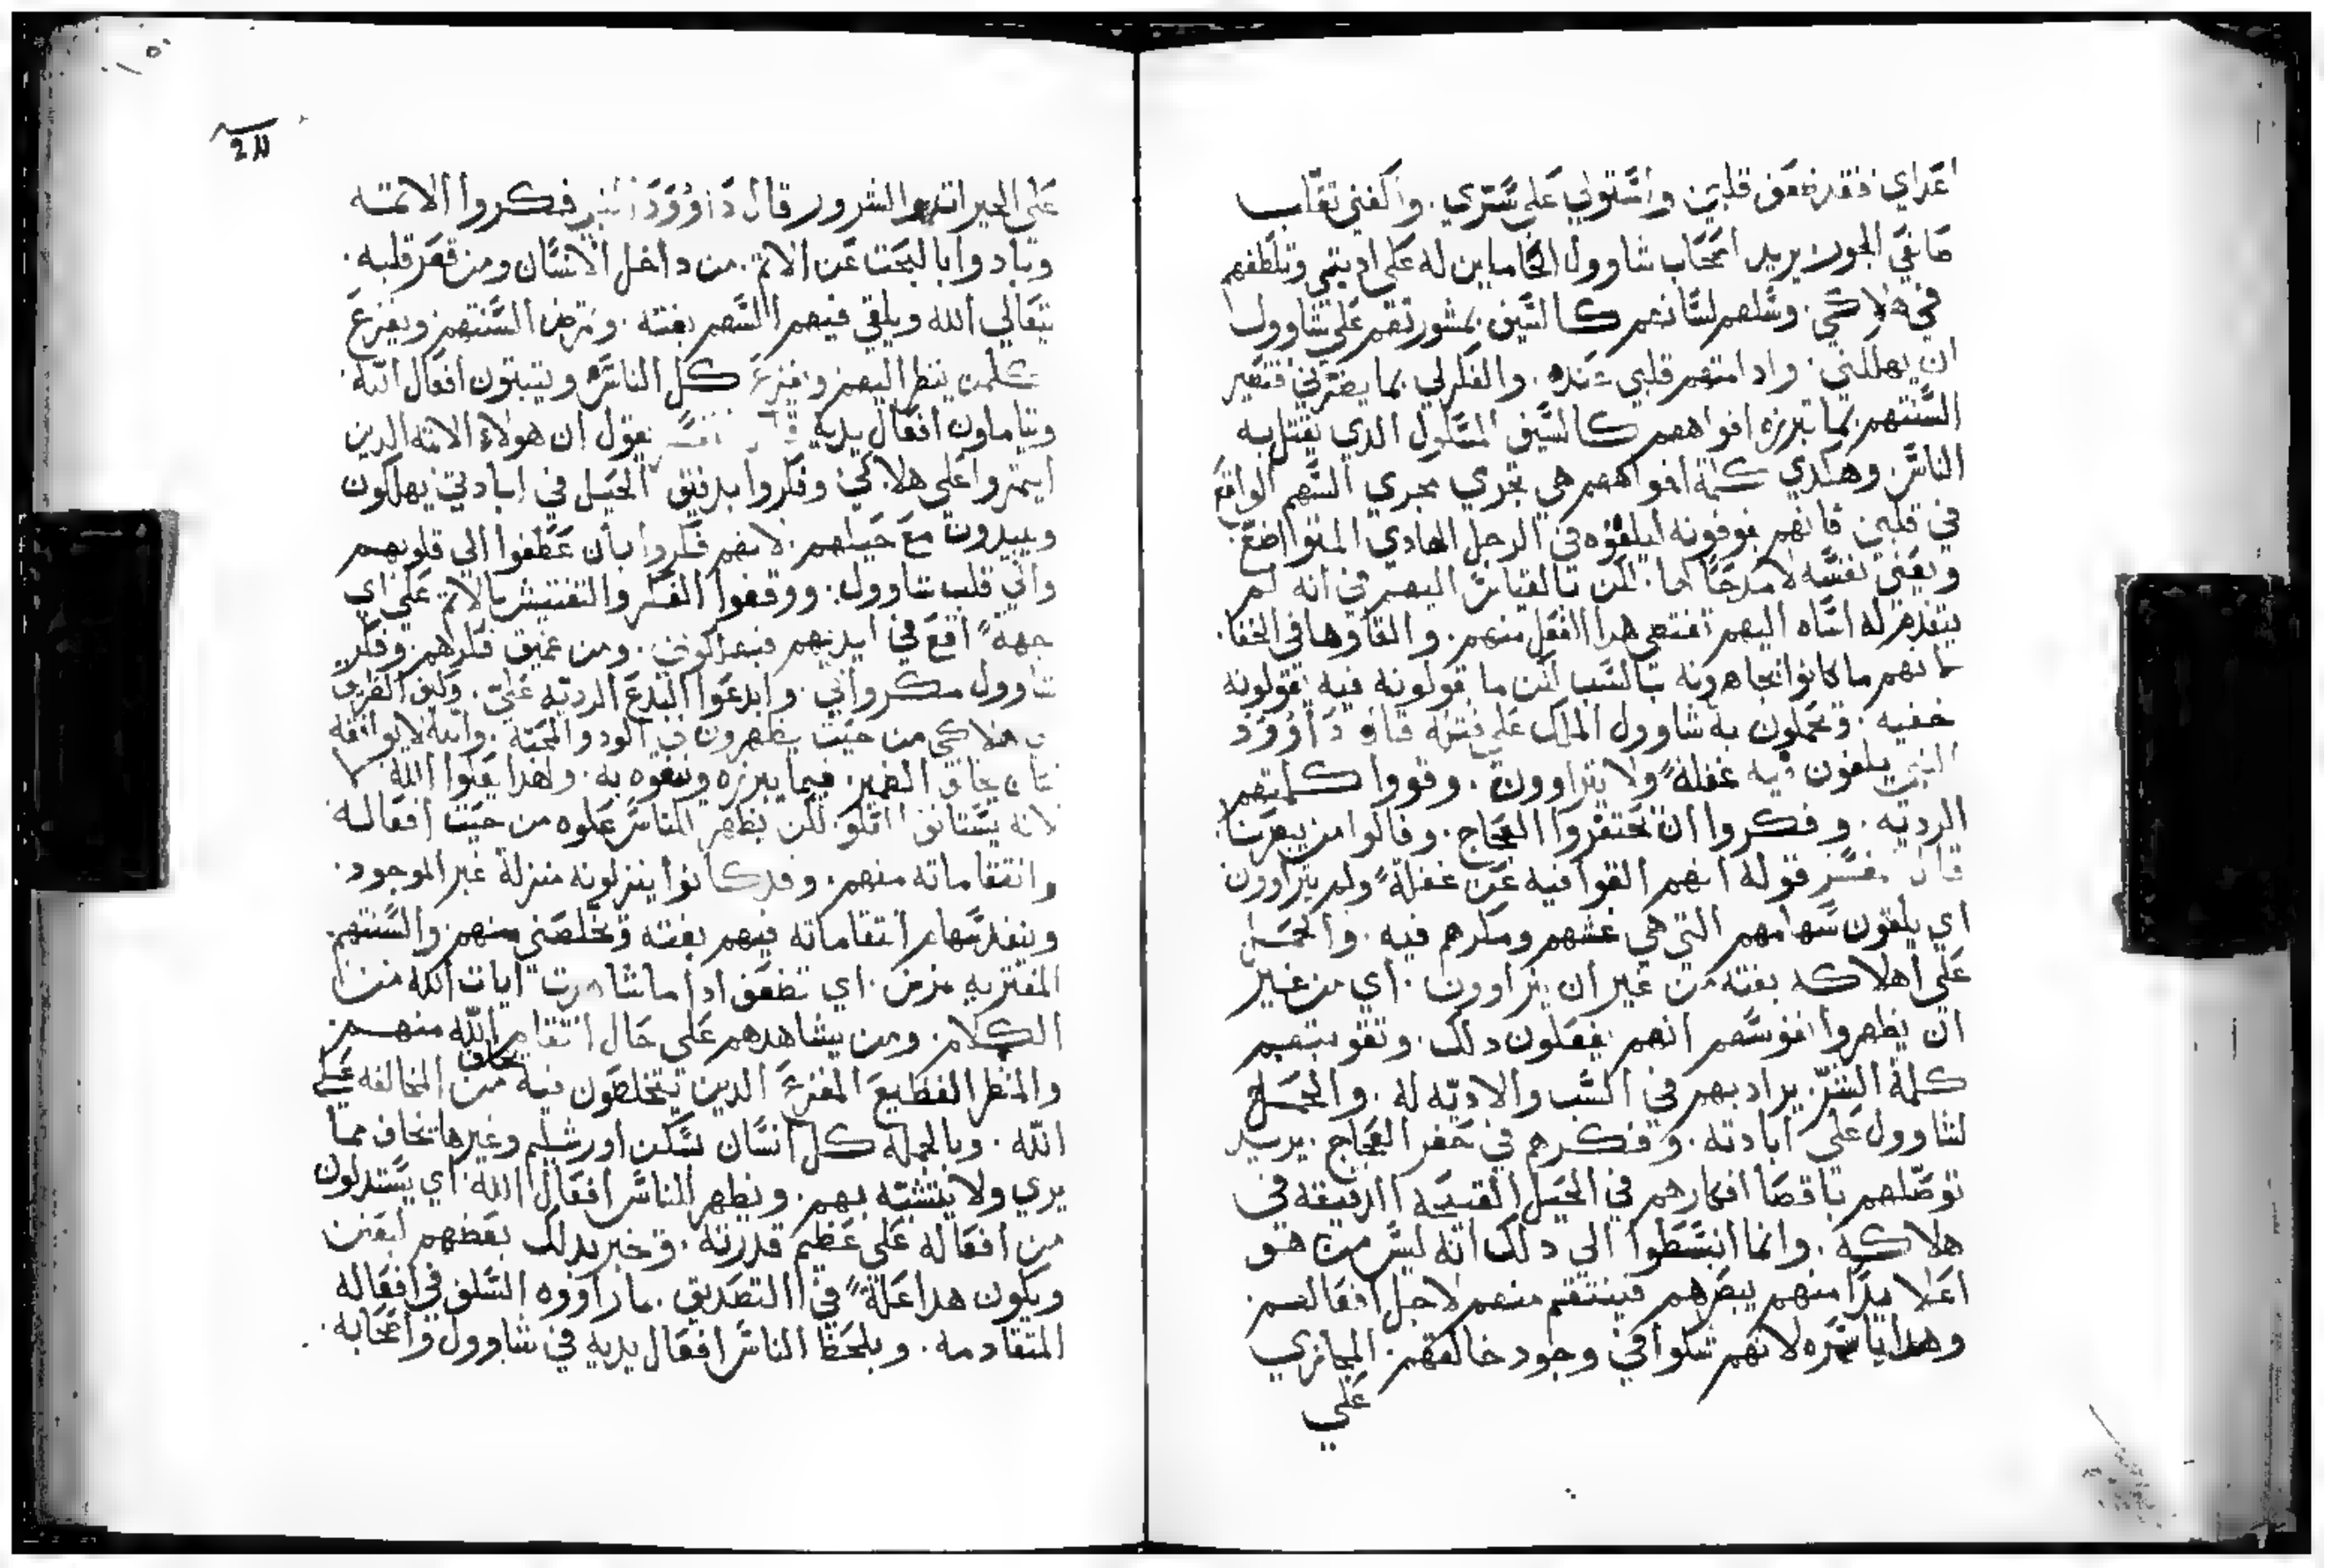 اعداي فقد ضعف قلبي واستولي علي سري. واكفني تقلب
صانعي الجور يريد اصحاب شاوول الحاملين له علي اديتي وتلطفهم
في هلاكي. وسلهم لسانهم كالسيف بمشورتهم علي شاوول
ان يهللني. وادامتهم قلبي عنده. والفكر لي بما يضرني فتصير
السنتهم بما تبرزه افواههم كالسيف المسلول الدي يقتل به
الناس. وهكدي كلمة افواههم هي تجري مجري السهم الواقع
في قلبي فانهم يوفونه ليلقوه في الرجل الهادي المتواضع
ويعني نفسه لا مدحا لها. لكن بالقياس اليهم في انه لم
يتقدم له اساه اليهم تقتضي هدا الفعل منهم. والقاوها في الخفا.
لانهم ما كانوا يجاهرونه بالسب لكن ما يقولونه فيه يقولونه
خفيه. ويحملون به شاوول الملك علي قتله قال داوود
النبي يلقون فيه غفلةً ولا يتراوون. وقووا كلمتهم
الرديه. وفكروا ان يحتفروا الفخاخ. وقالوا من يبصرنا
قال المفسر قوله انهم القوا فيه عن غفلةً ولم يتراوون
اي يلقون سهامهم التي هي غشهم ومكرهم فيه. والحمل
علي اهلاكه بغته من غير ان يتراوون. اي من غير
ان يظهروا نفوسهم انهم يفعلون دلك. وتقويتهم
كلمة الشر. يراد بهم في السب والاديه له. والحمل
لشاوول علي ابادته. وفكرهم في حفر الفخاخ. يريد
توصلهم باقصا افكارهم في الحيل القبيحه الدقيقه في
هلاكه. وانما انبسطوا الي دلك انه ليس من هو
اعلا يدا منهم يبصرهم فينتقم منهم لاجل افعالهم.
وهدا باسره لانهم شكوا في وجود خالقهم. المجازي
علي
علي الخيرات والشرور قال داوود النبي فكروا الاتمه
وبادوا بالبحت عن الاتم. من داخل الانسان ومن قعر قلبه.
يتعالي الله ويلقي فيهم السهم بغته. وتمرض السنتهم ويفزع
كلمن ينظر اليهم ويفزع كل الناس ويتبتون افعال الله.
ويتاملون افعال يديه قال المفسر يقول ان هولاء الاتمه الدين
ايتمروا علي هلاكي وفكروا بدقيق الحيل في ابادتي يهلكون
ويبيدون مع حيلهم. لانهم فكروا بان عطفوا الي قلوبهم
والي قلب شاوول. ووقفوا الفكر والتفتيش بالاتم علي اي
جهةً اقع في ايديهم فيهلكوني. ومن عميق فكرهم وفكر
شاوول مكروا بي. وابدعوا البدع الرديه علي. وكيف الطريق
في هلاكي من حيت يظهرون لي الود والمحبه. والله لا يوافقه
لسان يخالف الضمير. فيما يبرزه ويتفوه به. ولهدا يعلوا الله
لانه يستانف العلو لكن يظهر للناس علوه من حيت افعاله
وانتقاماته منهم. وقد كانوا ينزلونه منزلة غير الموجود.
وينفد سهام انتقاماته فيهم بغته ويخلصني منهم. والسنتهم
المفتريه تمرض. اي تضعف ادا ما شاهدت ايات الله من
الكلام. ومن يشاهدهم علي حال انتقام الله منهم.
والمنظر الفظيع المفزع الدين يتخلصون فيه يخاف من المخالفه علي
الله. وبالجمله كل انسان يسكن اورشليم وغيرها يخاف مما
يري ولا يتشبه بهم. ويظهر للناس افعال الله اي يستدلون
من افعاله علي عظم قدرته. ويخبر بدلك بعضهم لبعض
ويكون هدا علةً في التصديق. بما راووه السلف في افعاله
المتقادمه. ويلحظ الناس افعال يديه في شاوول واصحابه.